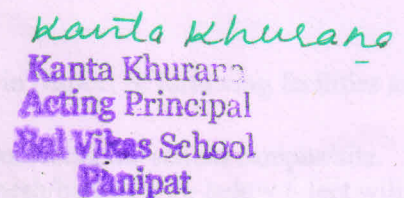 Kanta Khurana
Kanta Khurana
Acting Principal
Bal Vikas School
Panipat